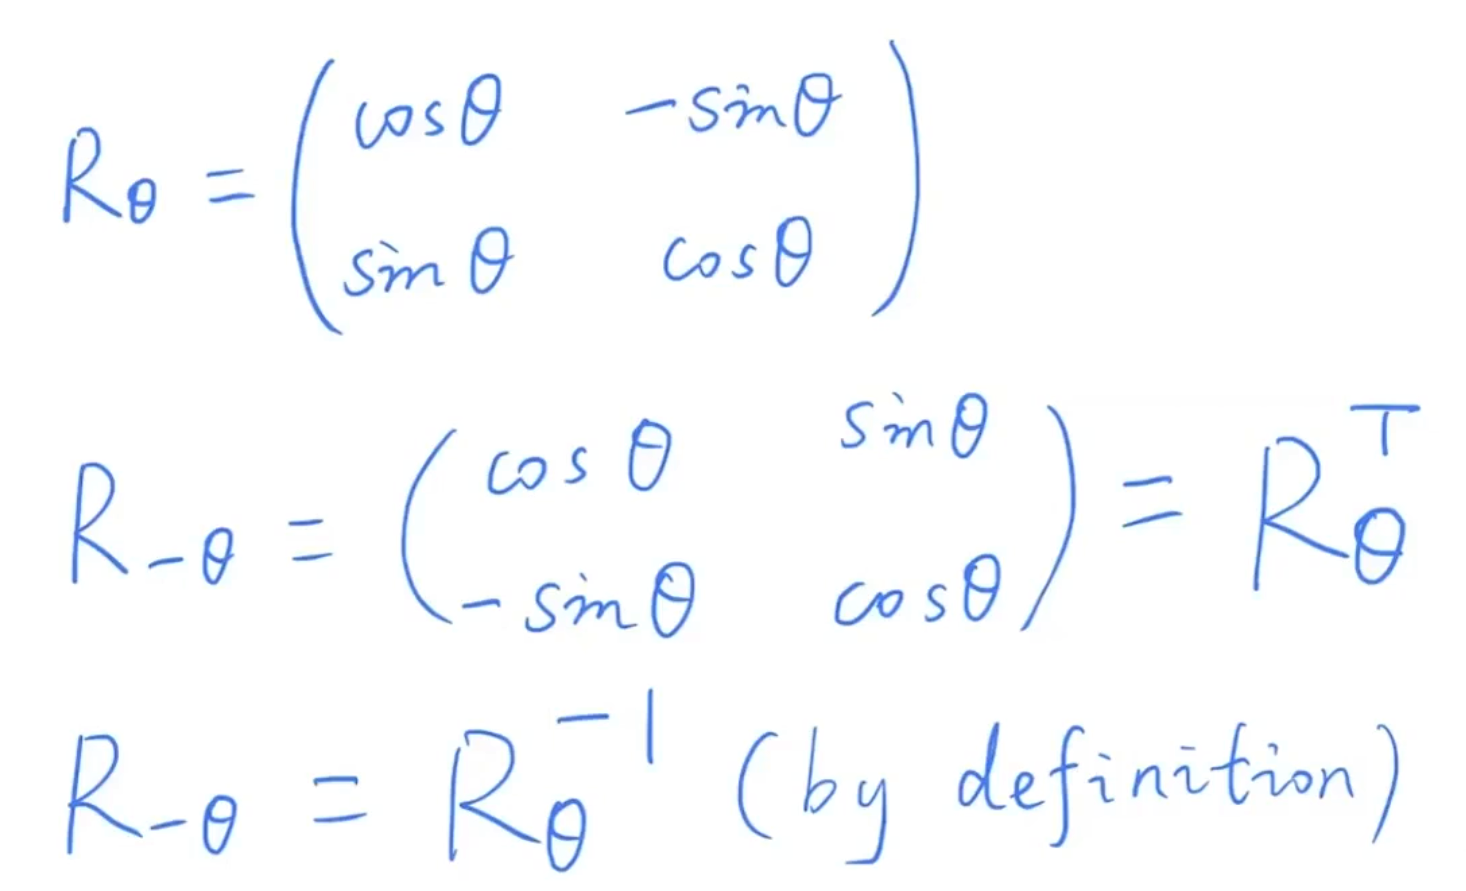 R_θ = \begin{pmatrix} cos θ & -sin θ \\ sin θ & cos θ \end{pmatrix}
R_{-θ} = \begin{pmatrix} cos θ & sin θ \\ -sin θ & cos θ \end{pmatrix} = R_θ^T
R_{-θ} = R_θ^{-1} (by definition)